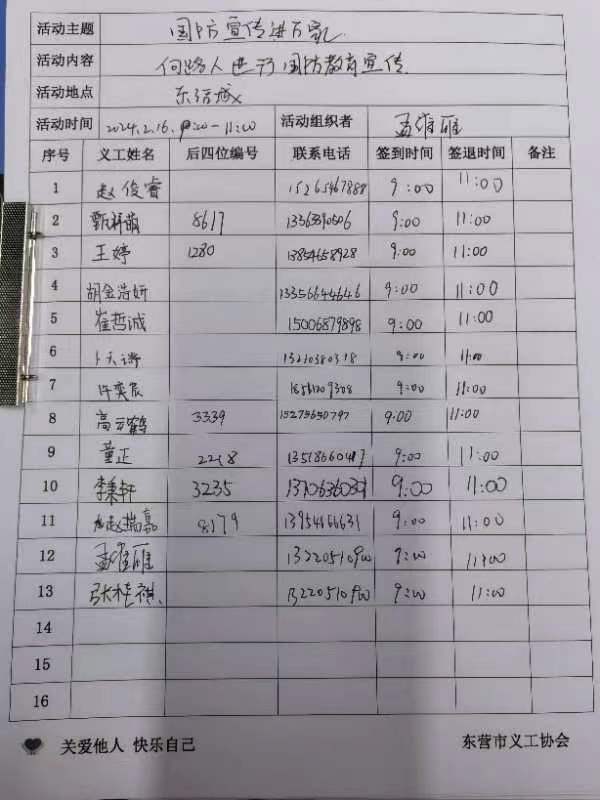 活动主题 国防宣传进万家
活动内容 向路人进行国防教育宣传
活动地点 东营
活动时间 2024.2.16. 9:00-11:00 活动组织者 孟维雁
序号 义工姓名 后四位编号 联系电话 签到时间 签退时间 备注
1 赵俊睿 15265467888 9:00 11:00
2 甄梓萌 8617 9:00 11:00
3 王婷 1280 13854658928 9:00 11:00
4 胡金 妍 13356644646 9:00 11:00
5 崔哲诚 15006879898 9:00 11:00
6 13210380318 9:00 11:00
7 许奕辰 9:00 11:00
8 高云鹤 3339 15275650797 9:00 11:00
9 董正 2218 9:00 11:00
10 李秉轩 3235 9:00 11:00
11 赵瑞嘉 8179 13954166631 9:00 11:00
12 孟维雁 13220510900 9:00 11:00
13 张桂祺 13220510900 9:00 11:00
14
15
16
关爱他人 快乐自己 东营市义工协会